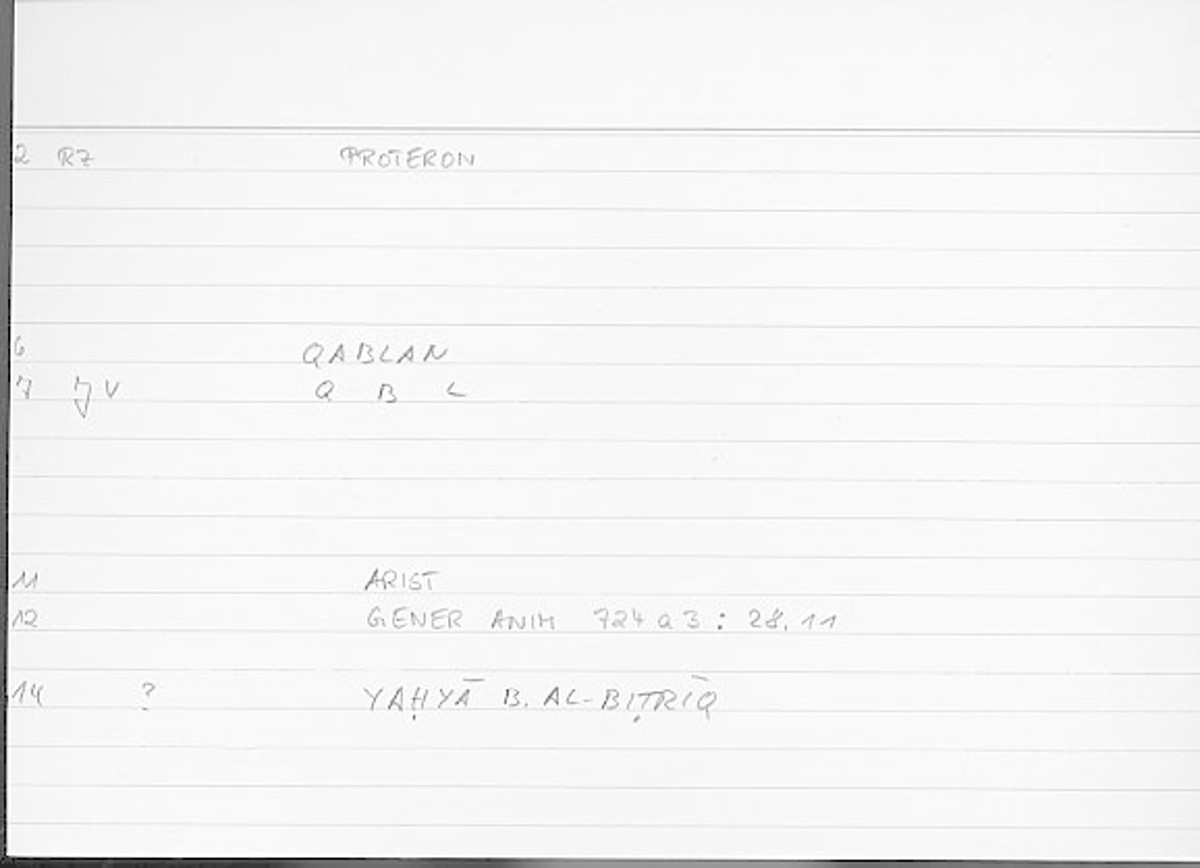 2 RZ PROTERON
6 QABLAN
7 V Q B L
11 ARIST
12 GENER ANIM 724 a 3 : 28.11
14 ? YAḤYĀ B. AL-BIṬRĪQ